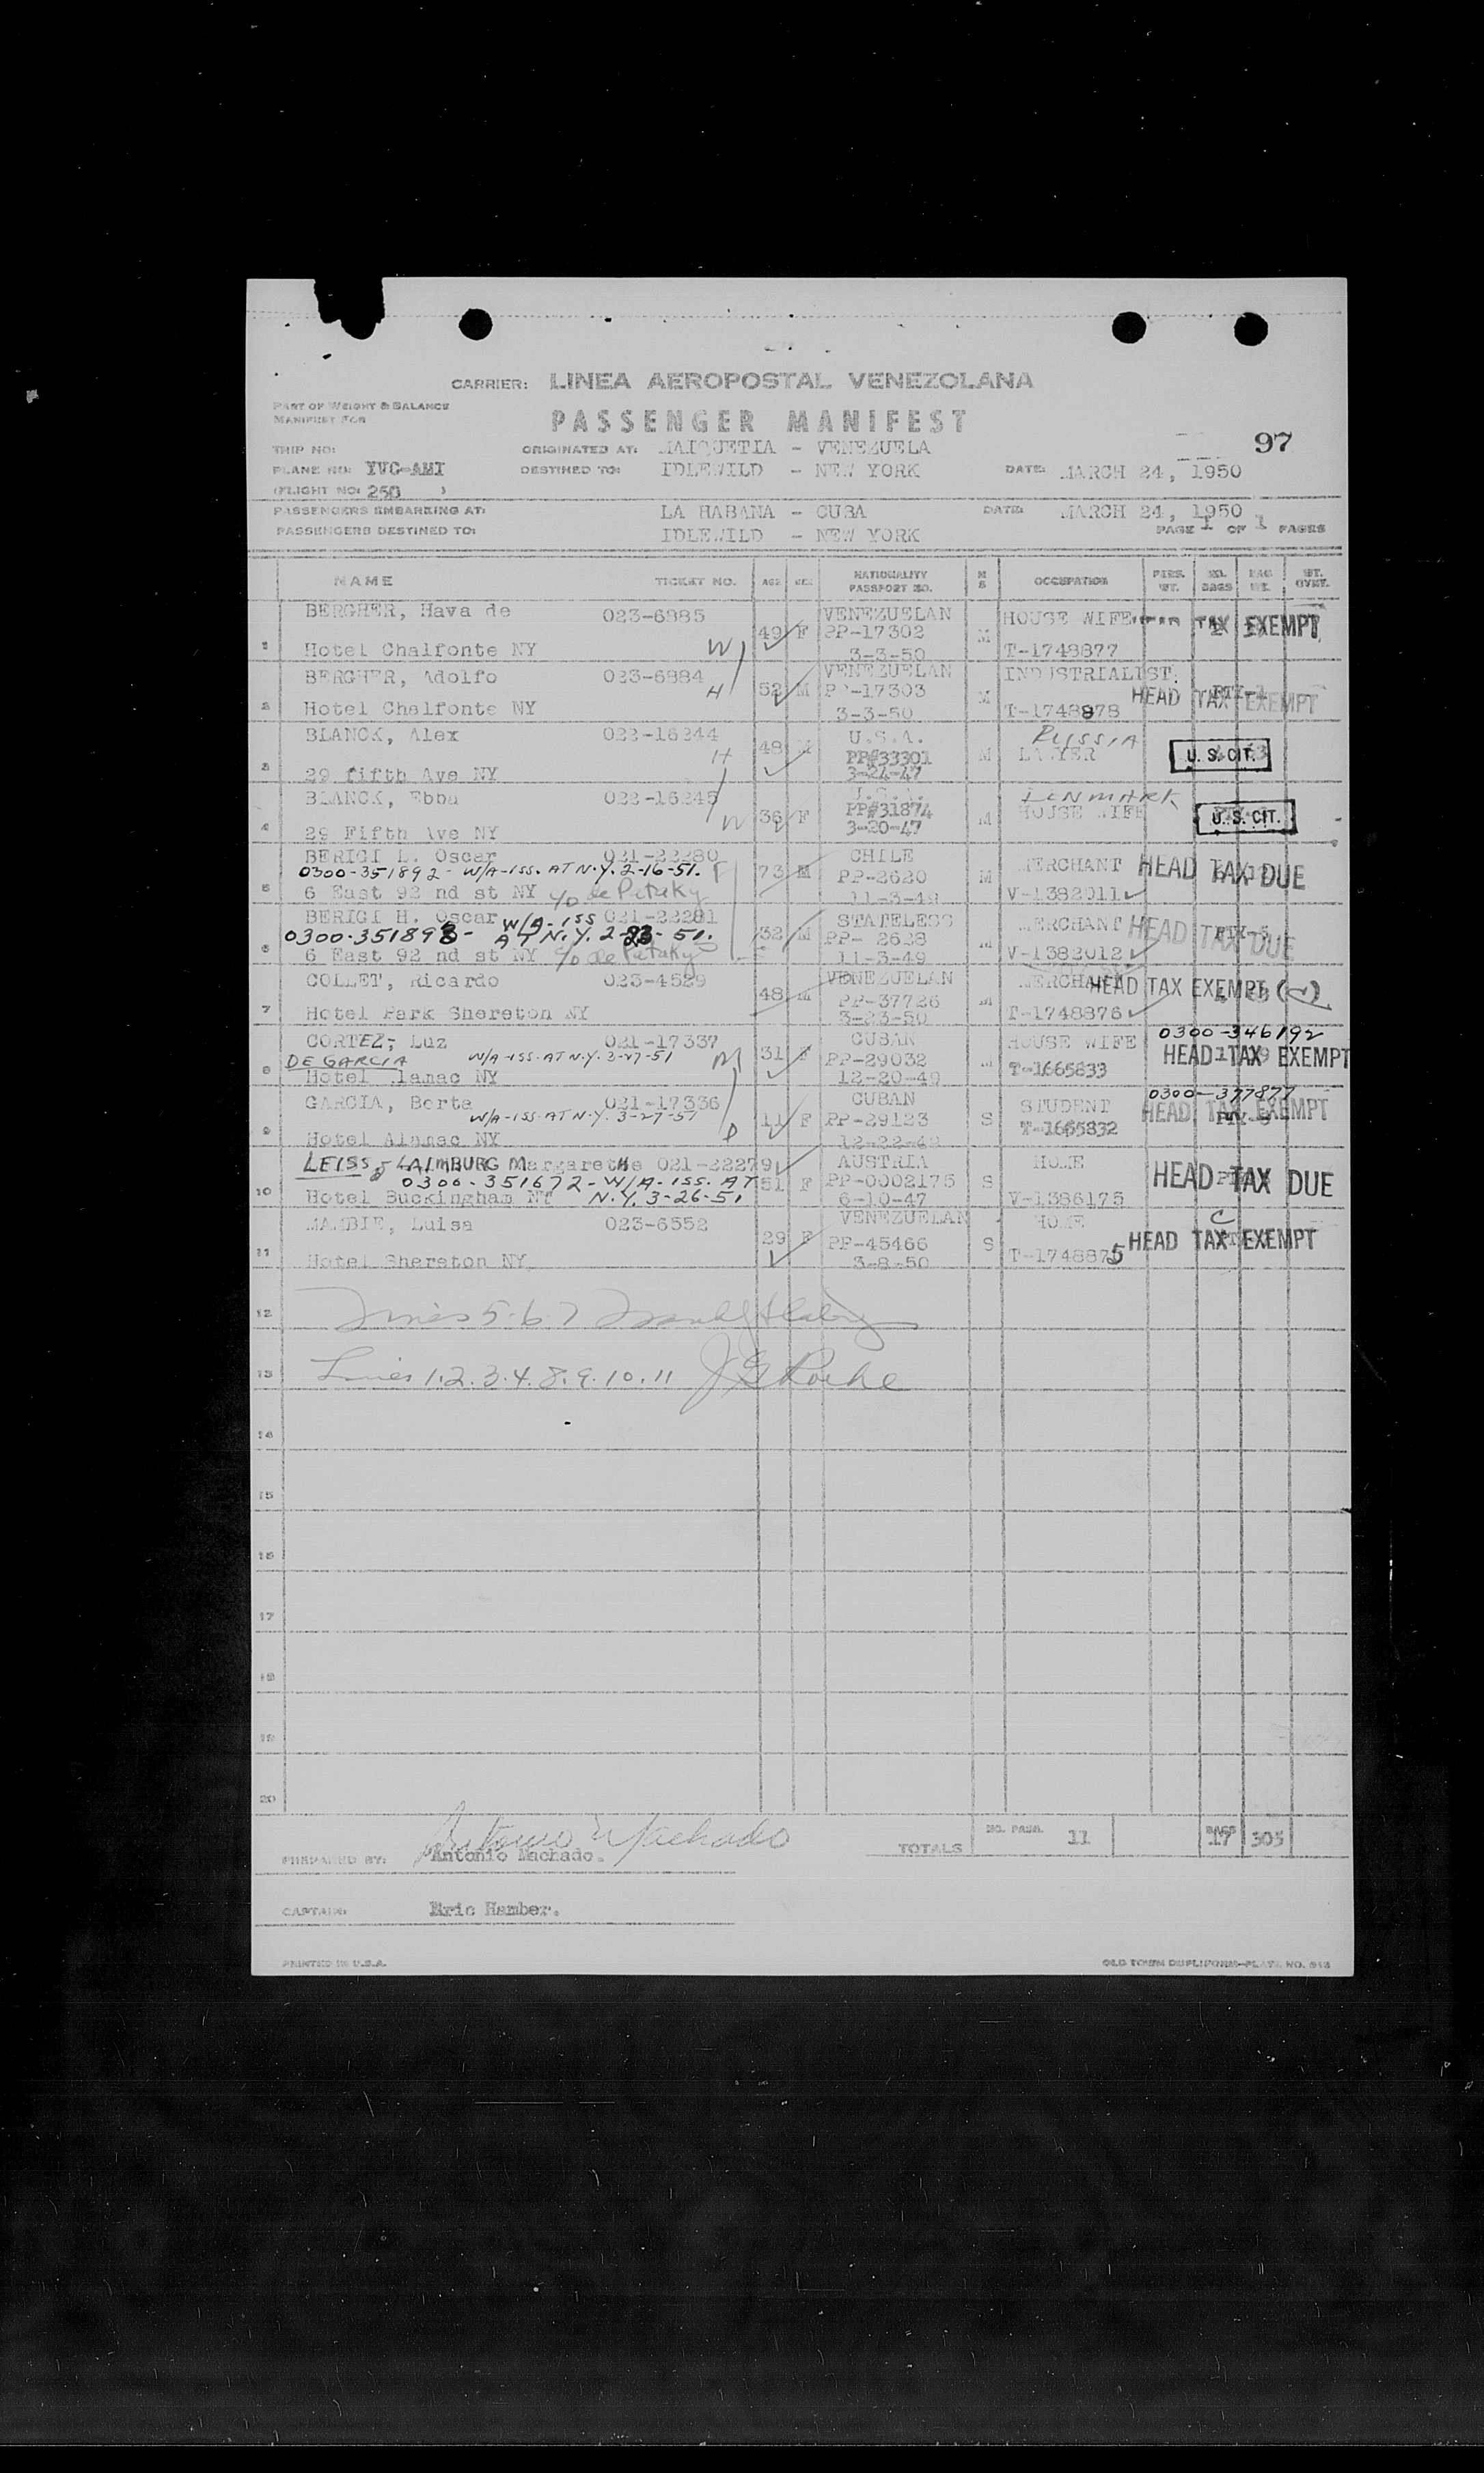 CARRIER: LINEA AEROPOSTAL VENEZOLANA
PART OF WEIGHT & BALANCE
MANIFEST FOR
PASSENGER MANIFEST
97
TRIP NO: ORIGINATED AT: MAIQUETIA - VENEZUELA
PLANE NO: YVC-AMI DESTINED TO: IDLEWILD - NEW YORK DATE: MARCH 24, 1950
(FLIGHT NO: 250 )
PASSENGERS EMBARKING AT: LA HABANA - CUBA DATE: MARCH 24, 1950
PASSENGERS DESTINED TO: IDLEWILD - NEW YORK PAGE 1 OF 1 PAGES
NAME TICKET NO. AGE SEX NATIONALITY PASSPORT NO. M S OCCUPATION PERS. WT. BAGS BAG WT. WT. OVWT.
BERGHER, Hava de 023-6985 VENEZUELAN HOUSE WIFE TAX EXEMPT
1 49 F PP-17302 M
Hotel Chalfonte NY W 3-3-50 T-1748877
BERGHER, Adolfo 023-6984 VENEZUELAN INDUSTRIALIST.
2 H 52 M PP-17303 M HEAD TAX EXEMPT
Hotel Chalfonte NY 3-3-50 T-1748878
BLANCK, Alex 022-16244 U.S.A. RUSSIA
3 H 48 M PP#33301 M LAWYER U. S. CIT.
29 fifth Ave NY 3-24-47
BLANCK, Ebba 022-16245 U.S.A. DENMARK
4 W 36 F PP#31874 M HOUSE WIFE U. S. CIT.
29 Fifth Ave NY 3-20-47
BERIGI L. Oscar 021-22280 CHILE
0300-351892- W/A-ISS. AT N.Y. 2-16-51. F 73 M PP-2620 M MERCHANT HEAD TAX DUE
5 6 East 92 nd st NY c/o de Pitaky 11-3-49 V-1382011
BERIGI H. Oscar W/A-ISS 021-22281 STATELESS
0300-351893- AT N.Y. 2-23-51. 52 M PP- 2628 M MERCHANT HEAD TAX DUE
6 6 East 92 nd st NY c/o de Pitaky 11-3-49 V-1382012
COLLET, Ricardo 023-4529 VENEZUELAN MERCHANT
7 48 M PP-37726 M HEAD TAX EXEMPT
Hotel Park Shereton NY 3-23-50 T-1748876
CORTEZ, Luz 021-17337 CUBAN HOUSE WIFE 0300-346192
DE GARCIA W/A-ISS. AT N.Y. 3-27-51 M 31 F PP-29032 M HEAD TAX EXEMPT
8 Hotel Alamac NY 12-20-49 T-1665833
GARCIA, Berta 021-17336 CUBAN STUDENT 0300-377877
W/A-ISS. AT N.Y. 3-27-51 11 F PP-29123 S HEAD TAX EXEMPT
9 Hotel Alamac NY D T-1665832
LEISS LAIMBURG Margarethe 021-22279 AUSTRIA HOME
0300-351672-W/A-ISS. AT 51 F PP-0002175 S HEAD TAX DUE
10 Hotel Buckingham NY N.Y. 3-26-51 6-10-47 V-1386175
MAMBIE, Luisa 023-6552 VENEZUELAN HOME C
29 F PP-45466 S HEAD TAX EXEMPT
11 Hotel Shereton NY 3-8-50 T-1748875
12 Lines 5-6-7
13 Lines 1.2.3.4.8.9.10.11 J G Roche
14
15
16
17
18
19
20
Antonio Machado
PREPARED BY: Antonio Machado. TOTALS NO. PASS. 11 BAGS 17 305
CAPTAIN: Eric Hamber.
PRINTED IN U.S.A. OLD TOWN DUPLIFORM-PLATE NO. 913